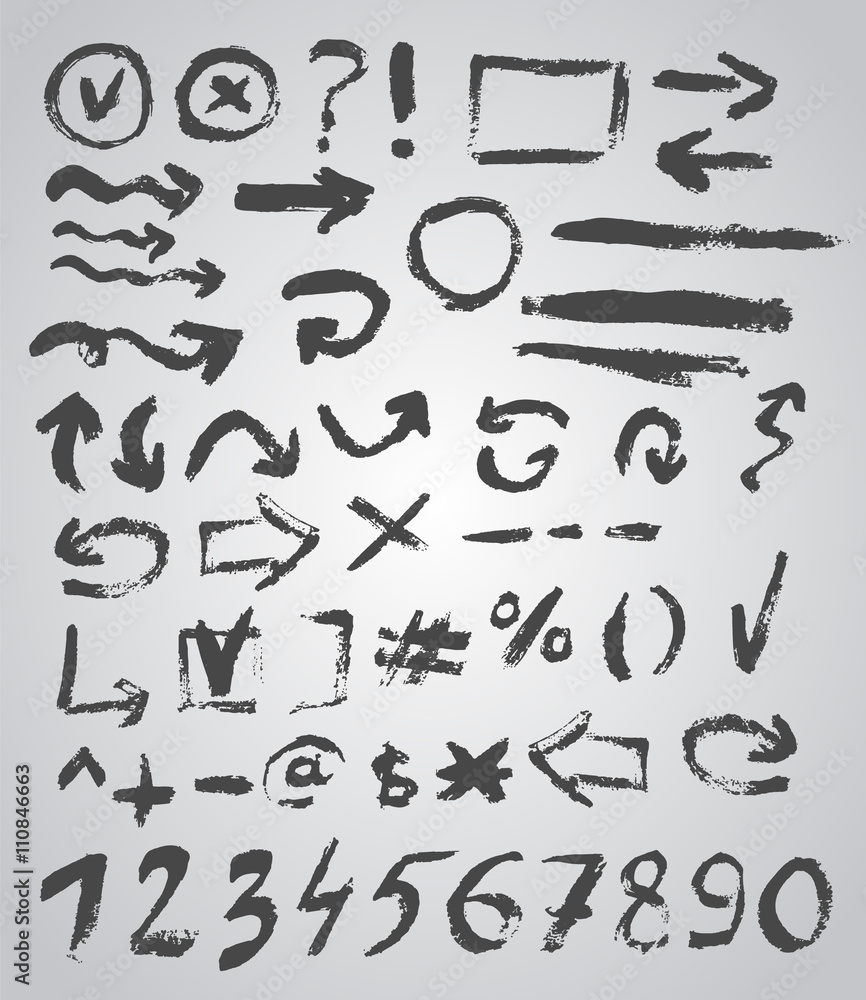 ? !
# % ( )
]
^ + - @ $ *
1 2 3 4 5 6 7 8 9 0
Adobe Stock | #110846663